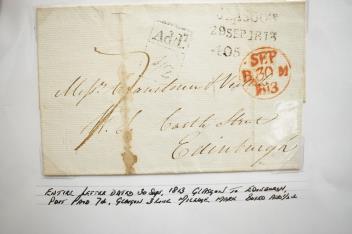 GLASGOW
29 SEP 1813
405
Addl
1/2
7
SEP
B 30 M
1813
Messrs
Castle Street
Edinburgh
ENTIRE LETTER DATED 30 SEP, 1813 GLASGOW TO EDINBURGH,
POST PAID 7d, GLASGOW 3 LINE MILEAGE MARK BOXED ADDL 1/2